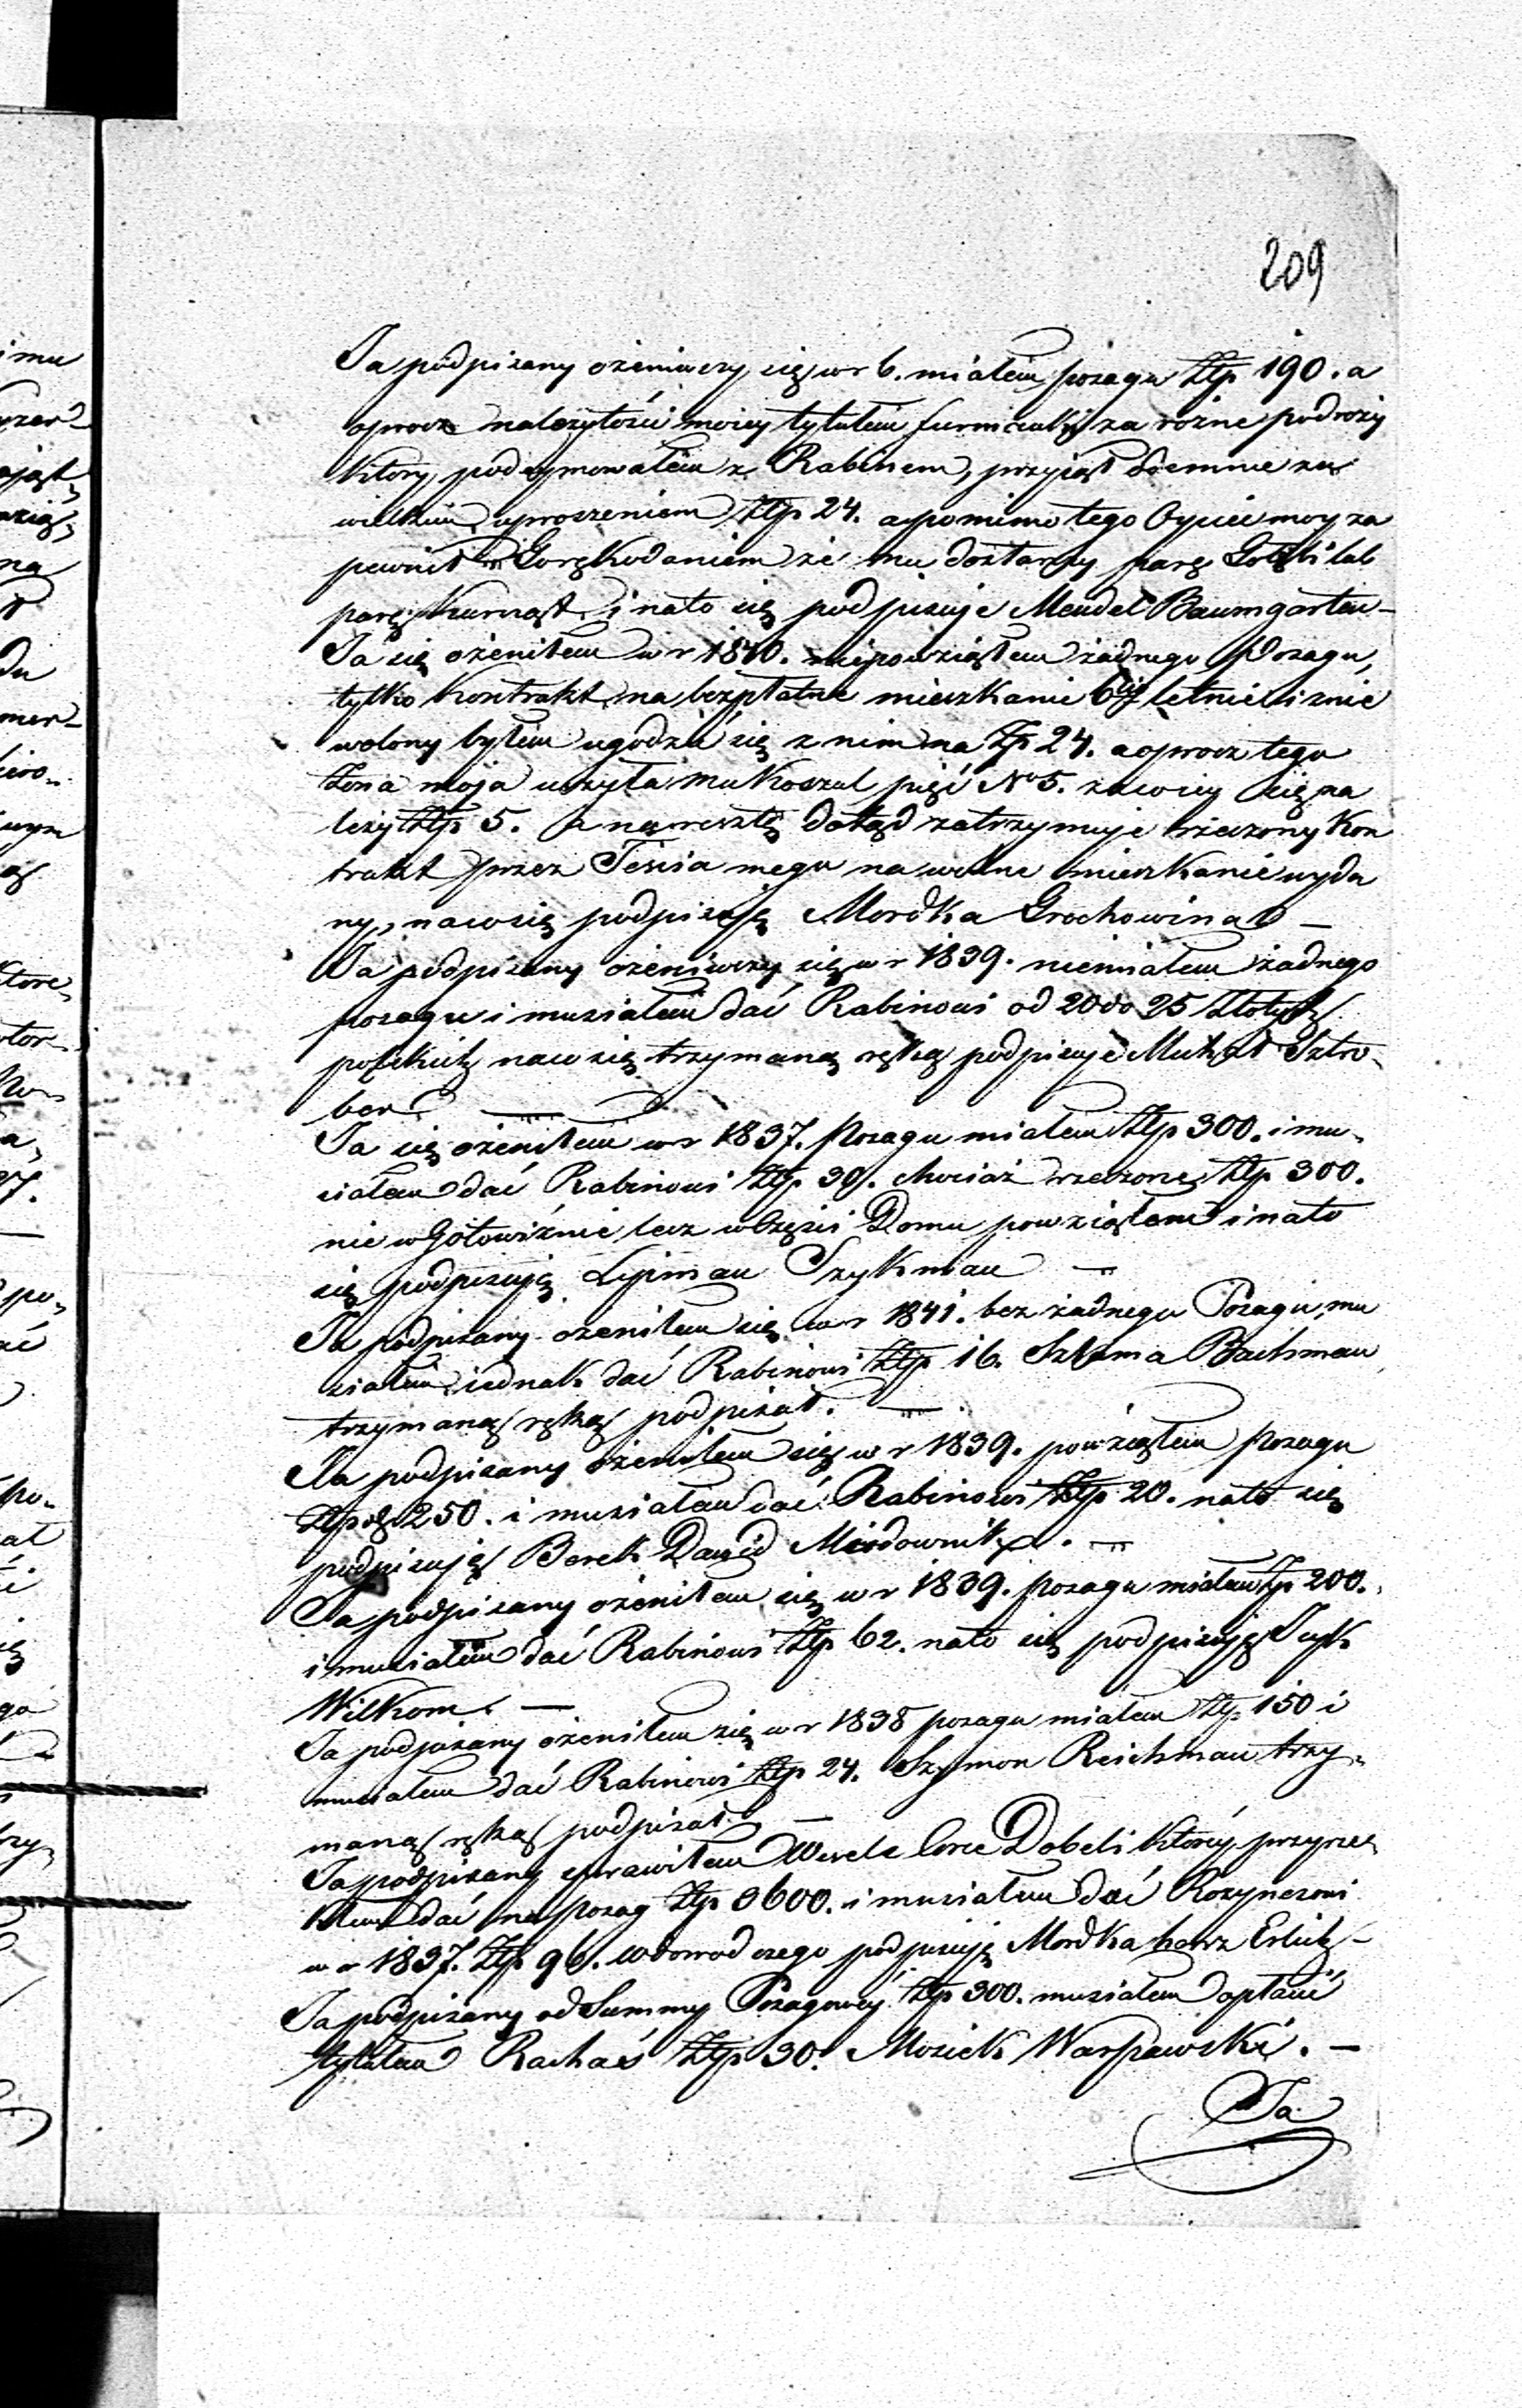 209
Ja podpisany ożeniwszy się w r b. miałem posagu Złp 190. a
oprocz należytości moiey tytułem furmanki za rożne podroży
ktory podeymowałem z Rabinem, przyiął odemnie za
wielkim uproszeniem Złp 24. a pomimo tego Oyciec moy za
pewnił mu Goręko daniem że mu dostarczy parę Gołębi lub
parę Kurcząt i nato się podpisuje Mendel Baumgarten –
Ja się ożeniłem w r 1840. niepowziąłem żadnego Posagu,
tylko Kontrakt na bezpłatne mieszkanie 6cio letnie i znie
wolony byłem ugodzić się z nim na Zp 24. a oprocz tego
Żona moja uszyła mu Koszul pięć No 5. zaco iey się na
leży Złp 5. a na resztę dotąd zatrzymuje rzeczony Kon
trakt przez Teścia mego na wolne mieszkanie wyda
ny, naco się podpisuję Mordka Grochowina –
Ja podpisany ożeniwszy się w r 1839. niemiałem żadnego
posagu i musiałem dać Rabinowi od 20 do 25 Złotych
polskich naco się trzymaną ręką podpisuje Sztro„
ber –
Ja się ożeniłem w r 1837. Posagu miałem Złp 300. i mu„
siałem dać Rabinowi Złp 30. chociaż rzeczone Złp 300.
nie w Gotowiźnie lecz w Częsci Domu powziąłem i nato
się podpisuję Lipman Szykman –
Ja podpisany ożeniłem się w r 1841. bez żadnego Posagu, mu
siałem iednak dać Rabinowi Złp 16. Szlama Bachman
trzymaną ręką podpisał. –
Ja podpisany ożeniłem się w r 1839. powziąłem Posagu
Złp 250. i musiałem dać Rabinowi Złp 20. nato się
podpisuję Berek Dawid Miodownik. –
Ja podpisany ożeniłem się w r 1839. Posagu miałem Zp 200.
i musiałem dać Rabinowi Złp 62. nato się podpisuję
Wilkom. –
Ja podpisany ożeniłem się w r 1838 posagu miałem Złp 150 i
musiałem dać Rabinowi Złp 24. Szymon Reichman trzy„
maną ręką podpisał. –
Ja podpisany sprawiłem Wesele Corce Dobeli ktorey przyrze„
kłem dać na posag Złp 3600. i musiałem dać Rozynesowi
w r 1837. Złp 96. w dowod czego podpisuję Mordka Erlich –
Ja podpisany od Summy Posagowey Złp 300. musiałem opłacić
tytułem Rachaś Złp 30. Mosiek Warszawski. –
Ja